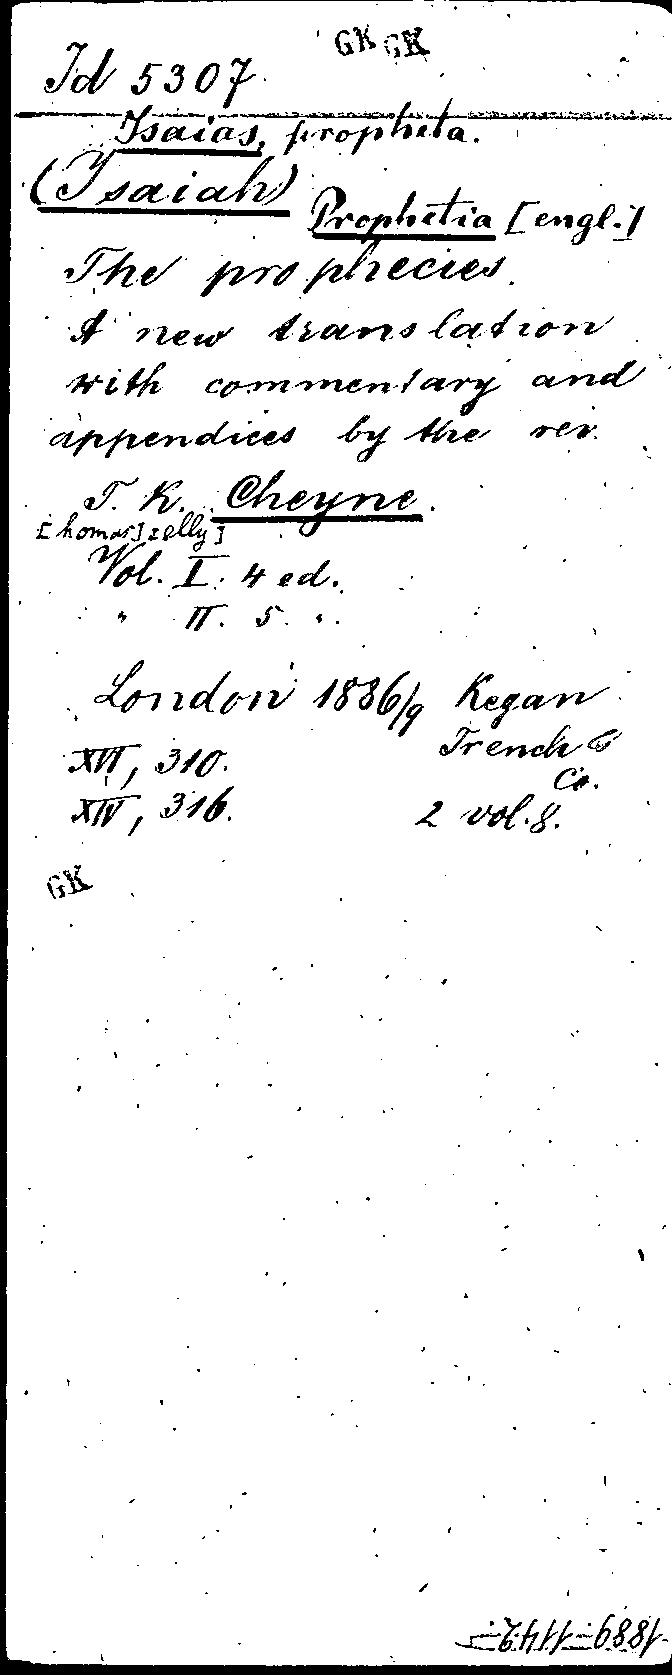 GK GK
Id 5307
Isaias, propheta.
(Isaiah)
Prophetia [engl.]
The prophecies.
A new translation
with commentary and
appendices by the rev.
T. K. Cheyne.
[homas] [elly]
Vol. I. 4 ed.
" II. 5. ".
London 1886/9 Kegan
Trench &
Co.
XVI, 310.
XIV, 316.
2 vol. 8.
GK
1889-1142